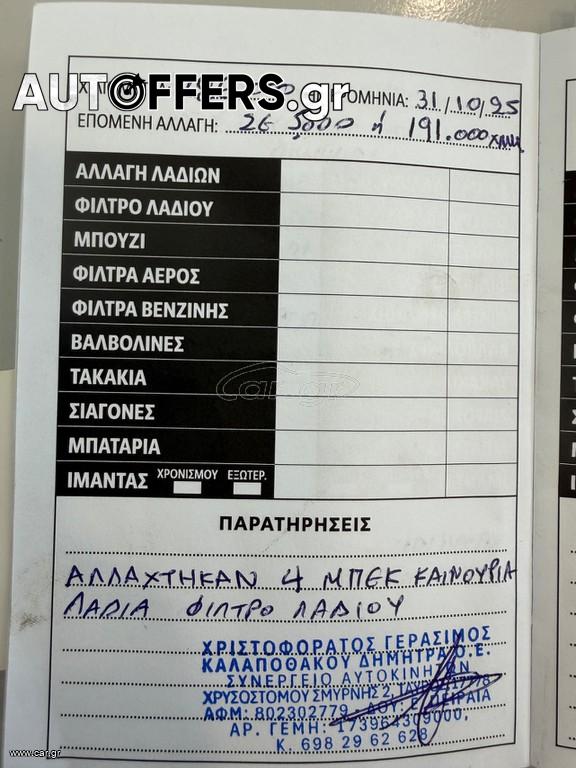 AUTOFFERS.gr
ΗΜΕΡΟΜΗΝΙΑ: 31/10/25
ΕΠΟΜΕΝΗ ΑΛΛΑΓΗ: ΣΕ 5000 ή 191.000 ΧΛΜ
ΑΛΛΑΓΗ ΛΑΔΙΩΝ
ΦΙΛΤΡΟ ΛΑΔΙΟΥ
ΜΠΟΥΖΙ
ΦΙΛΤΡΑ ΑΕΡΟΣ
ΦΙΛΤΡΑ ΒΕΝΖΙΝΗΣ
ΒΑΛΒΟΛΙΝΕΣ
ΤΑΚΑΚΙΑ
car.gr
ΣΙΑΓΟΝΕΣ
ΜΠΑΤΑΡΙΑ
ΙΜΑΝΤΑΣ ΧΡΟΝΙΣΜΟΥ ΕΞΩΤΕΡ.
ΠΑΡΑΤΗΡΗΣΕΙΣ
ΑΛΛΑΧΤΗΚΑΝ 4 ΜΠΕΚ ΚΑΙΝΟΥΡΙΑ
ΛΑΔΙΑ ΦΙΛΤΡΟ ΛΑΔΙΟΥ
ΧΡΙΣΤΟΦΟΡΑΤΟΣ ΓΕΡΑΣΙΜΟΣ
ΚΑΛΑΠΟΘΑΚΟΥ ΔΗΜΗΤΡΑ Ο.Ε.
ΣΥΝΕΡΓΕΙΟ ΑΥΤΟΚΙΝΗΤΩΝ
ΧΡΥΣΟΣΤΟΜΟΥ ΣΜΥΡΝΗΣ 2, 17778
ΑΦΜ: 802302779 - ΔΟΥ: ΠΕΙΡΑΙΑ
ΑΡ. ΓΕΜΗ: 173964309000,
Κ. 698 29 62 628
www.car.gr